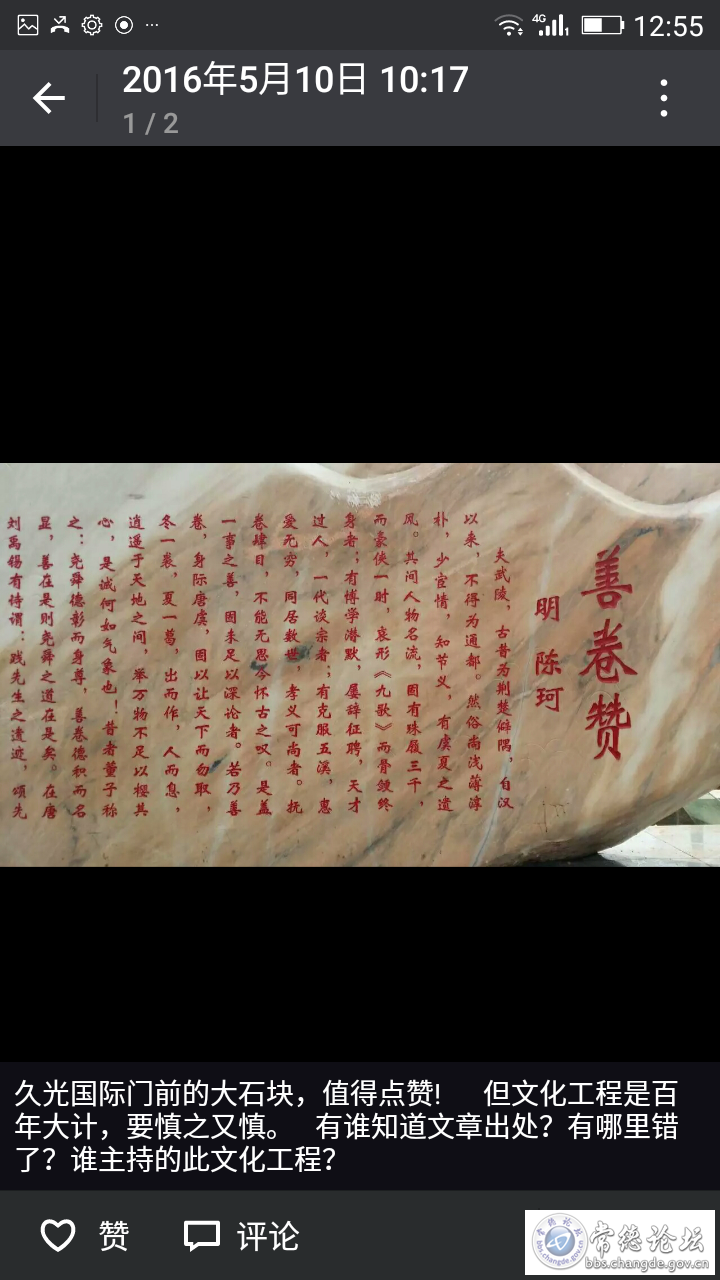 4G
12:55
2016年5月10日 10:17
1 / 2
善卷赞
明 陈珂
夫武陵，古昔为荆楚僻隅，自汉
以来，不得为通都。然俗尚浅薄淳
朴，少宦情，知节义，有虞夏之遗
风。其间人物名流，固有珠履三千，
而豪侠一时，哀形《九歌》而骨鲠终
身者；有博学潜默，屡辞征聘，天才
过人，一代谈宗者；有克服五溪，惠
爱无穷，同居数世，孝义可尚者。抚
卷肆目，不能无思今怀古之叹。是盖
一事之善，固未足以深论者。若乃善
卷，身际唐虞，固以让天下而勿取，
冬一裘，夏一葛，出而作，人而息，
逍遥于天地之间，举万物不足以撄其
心，是诚何如气象也！昔者董子称
之：尧舜德彰而身尊，善卷德积而名
显，善在是则尧舜之道在是矣。在唐
刘禹锡有诗谓：践先生之遗迹，颂先
久光国际门前的大石块，值得点赞! 但文化工程是百
年大计，要慎之又慎。 有谁知道文章出处？有哪里错
了？谁主持的此文化工程？
赞 评论
常德论坛
bbs.changde.gov.cn